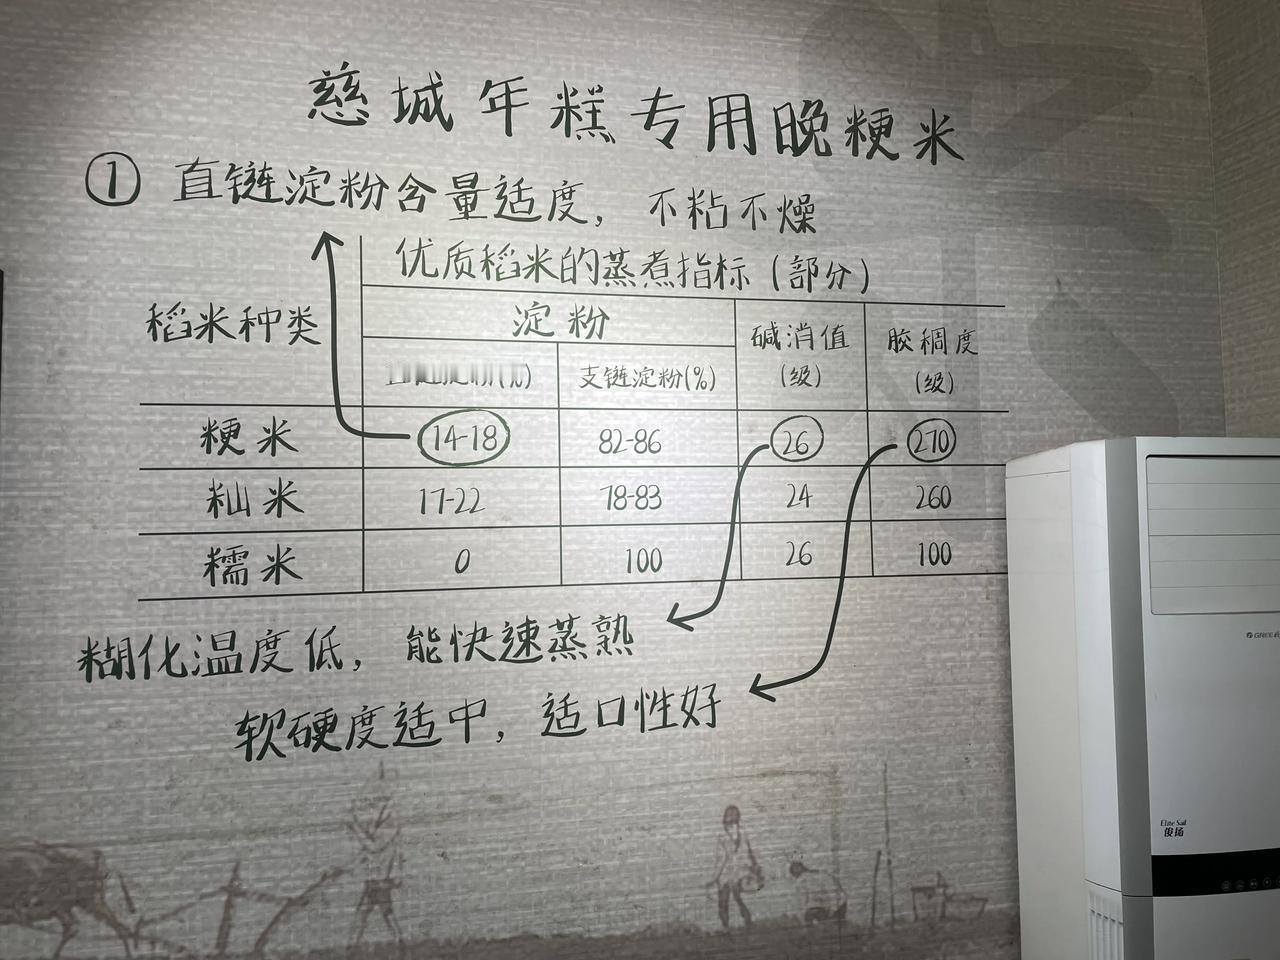 慈城年糕专用晚粳米
① 直链淀粉含量适度，不粘不燥
优质稻米的蒸煮指标（部分）
稻米种类 淀粉 碱消值（级） 胶稠度（级）
支链淀粉(%)
粳米 14-18 82-86 26 270
籼米 17-22 78-83 24 260
糯米 0 100 26 100
糊化温度低，能快速蒸熟
软硬度适中，适口性好
GREE
Elite Sail
俊扬